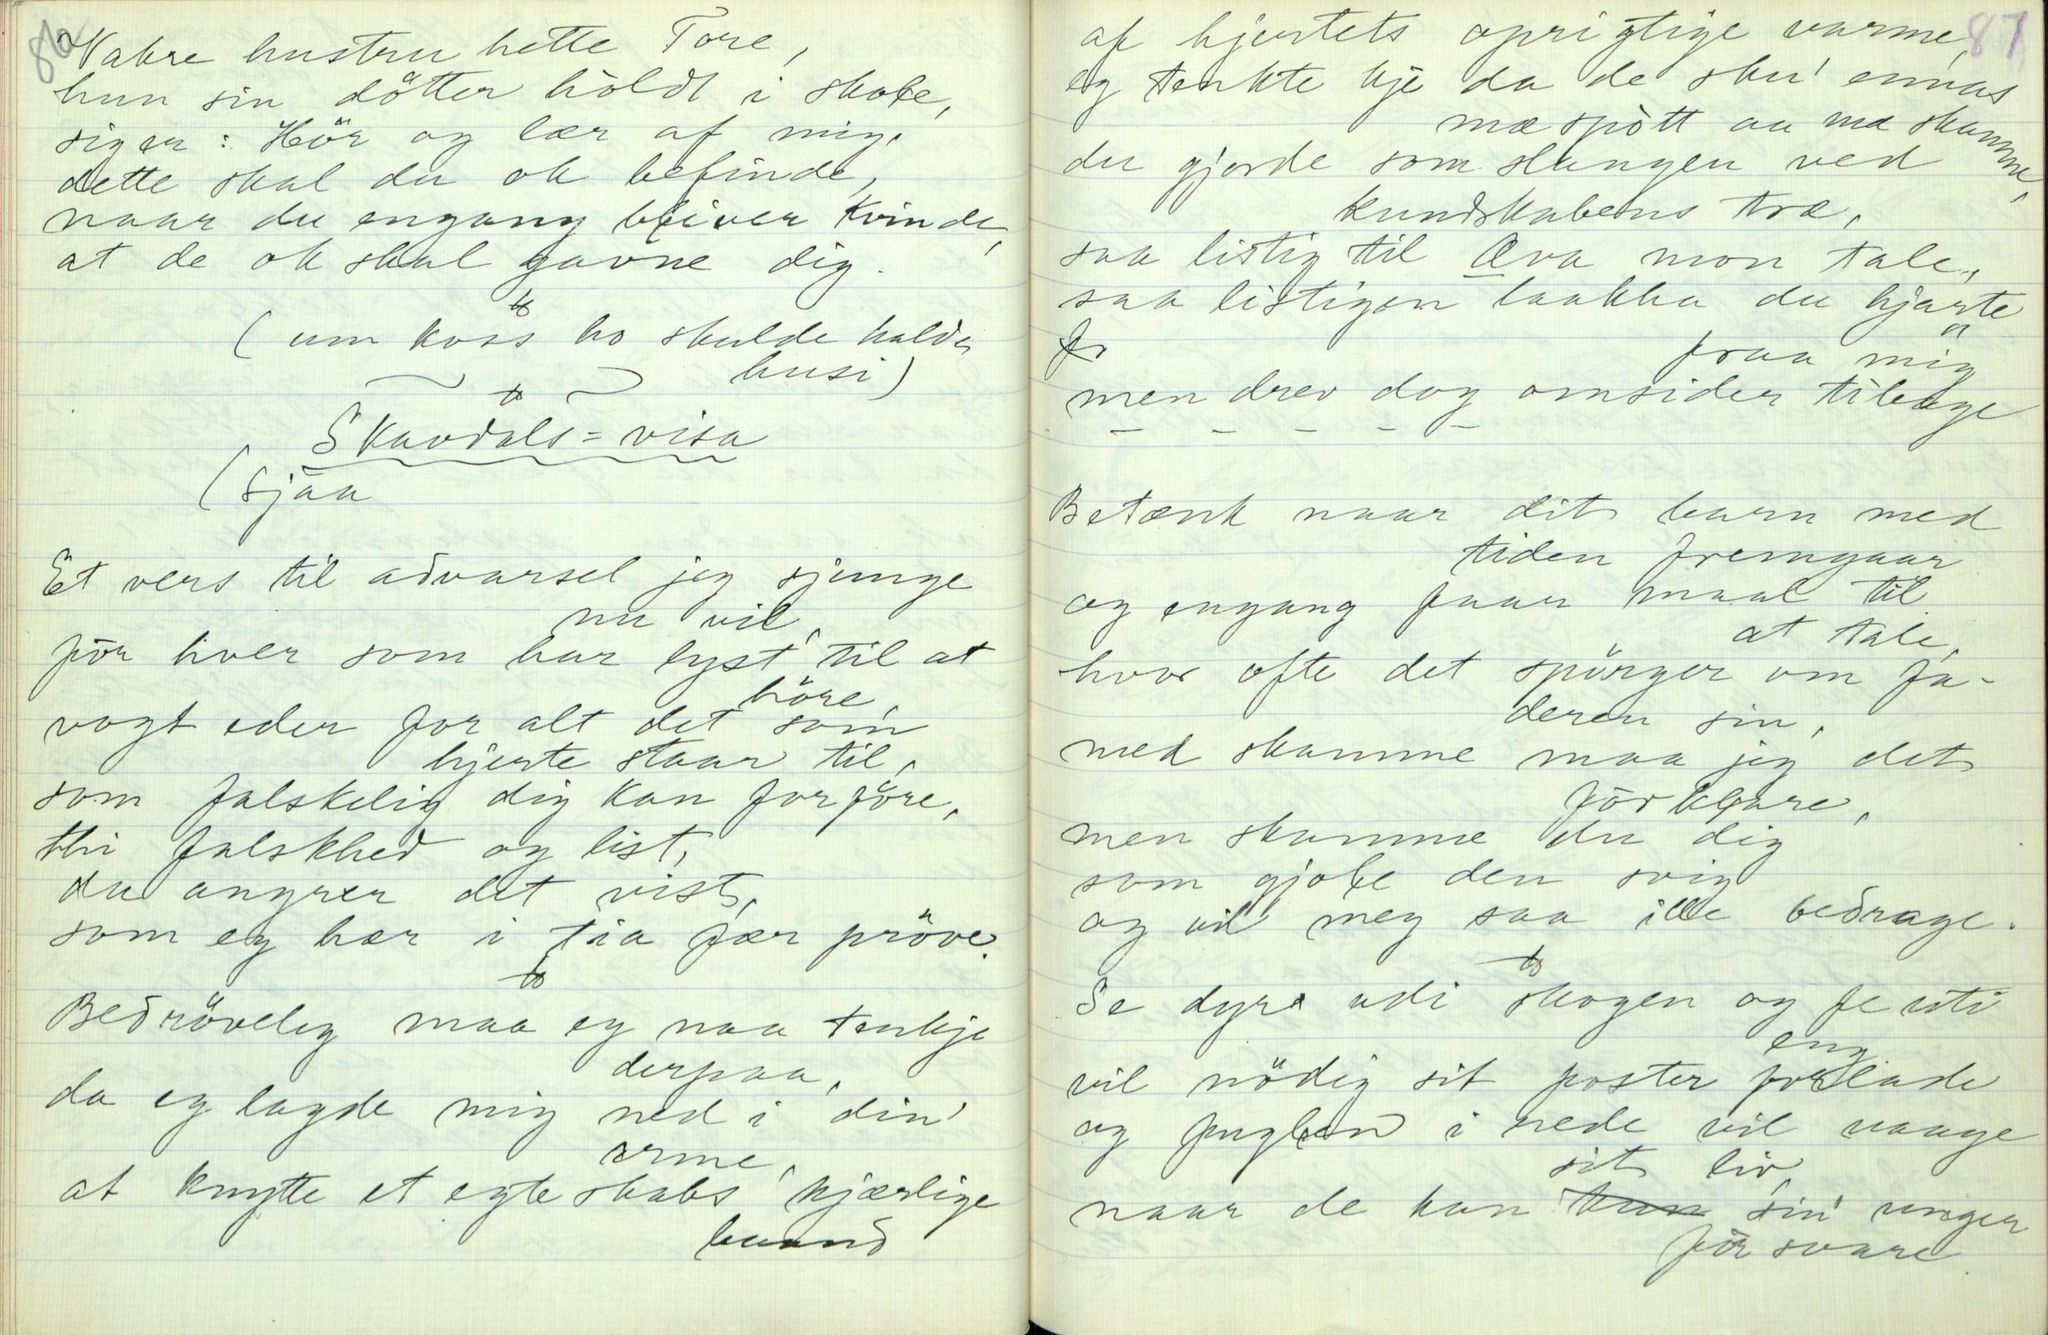 86
Vakre hustru hette Tore,
hun sin dötter höldt i skole,
siger: Hör og lær af mig,
dette skal du ok befinde,
naar du engang bliver kvinde,
at de ok skal gavne dig.
(um koss ho skulde halda
husi)
Skavdals=visa
(Sjaa
Et vers til advarsel jeg sjunge
nu vil,
för hver som har lyst til at
höre,
vogt eder for alt det som
hjerte staar til,
som falskelig dig kan forföre,
thi falskhed og list,
du angrer det vist,
som eg hær i tia fær pröve.
Bedrövelig maa eg naa tenkje
derpaa,
da eg lagde mig ned i din
arme,
at knytte et egteskabs kjærlige
baand
87
af hjertets oprigtige varme,
eg tenkte kje da de sku' ennas
mæ spött au mæ skamme,
du gjorde som slangen ved
kundskabens træ,
saa listig til Æva mon tale,
saa listigen laakka du hjarte
fr
fraa mig
men drev dog omsider tilbage
– – – – –
Betænk naar dit barn med
tiden fremgaar
og engang faar maal til
at tale,
hvor ofte det spörger om fa-
deren sin,
med skamme maa jeg det
förklare,
men skamme du dig
som gjole den svig
og vil meg saa ille bedrage.
Se dyre udi skogen og fe uti
eng
vil nödig sit foster forlade
og fuglen i rede vil vaage
sit liv,
naar de kan kan sin unger
för svare